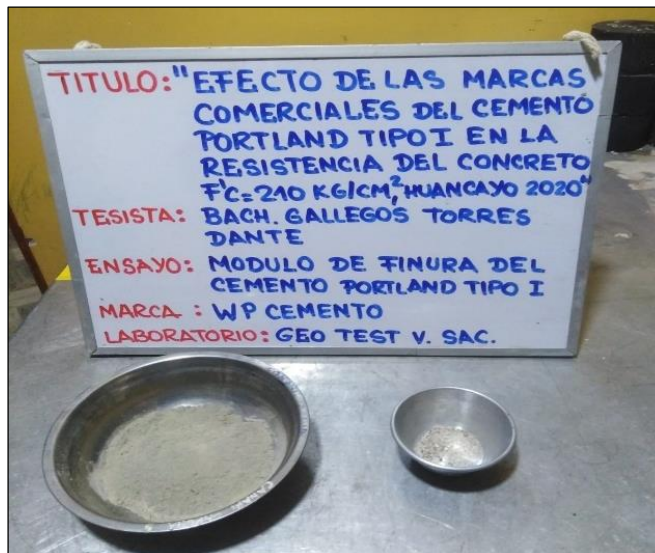 TITULO: "EFECTO DE LAS MARCAS
COMERCIALES DEL CEMENTO
PORTLAND TIPO I EN LA
RESISTENCIA DEL CONCRETO
F'C=210 KG/CM², HUANCAYO 2020"
TESISTA: BACH. GALLEGOS TORRES
DANTE
ENSAYO: MODULO DE FINURA DEL
CEMENTO PORTLAND TIPO I
MARCA : WP CEMENTO
LABORATORIO: GEO TEST V. SAC.